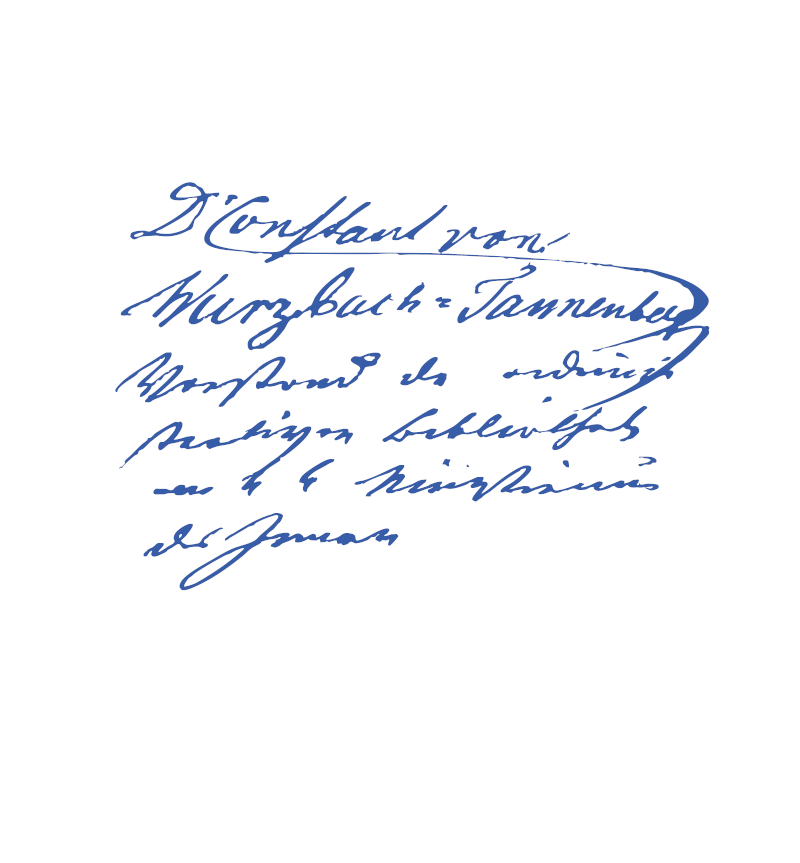 Dr Constant von
Wurzbach=Tannenberg
Vorstand der administ
rativen Bibliothek
des k k Ministeriums
des Innern